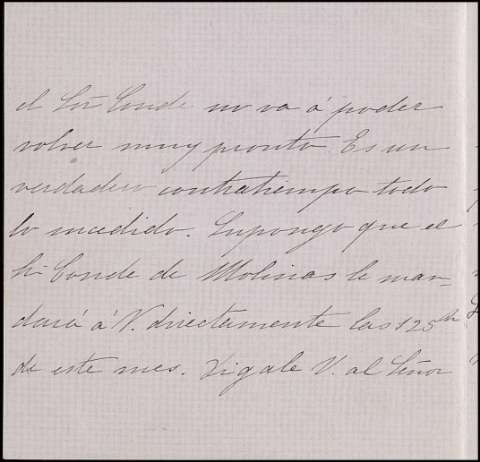 el Sōr Conde no va á poder
volver muy pronto Es un
verdadero contratiempo todo
lo sucedido. Supongo que el
Sōr Conde de Molinas le man-
dará á V. directamente las 125
de este mes. Digale V. al Señor